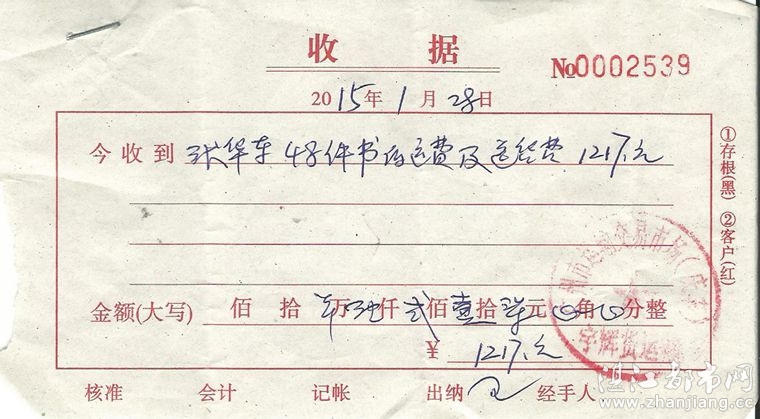 收 据
№0002539
2015年1月28日
今收到 张华车48件书的运费及送货费1217.元
金额(大写) 佰 拾 万 仟 弍佰壹拾 元 0角0分整
¥ 1217.元
核准 会计 记帐 出纳 经手人
①存根(黑) ②客户(红)
宇辉货运
湛江都市网
www.zhanjiang.cc